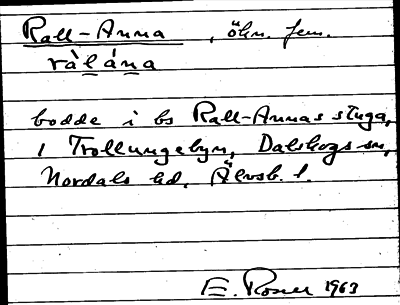 Rall-Anna, öhn. fem.
ràl̲án̲a
bodde i bs Rall-Annas stuga,
i Trollungebyn, Dalskogs sn,
Nordals hd, Älvsb. l.
E. Rosner 1963